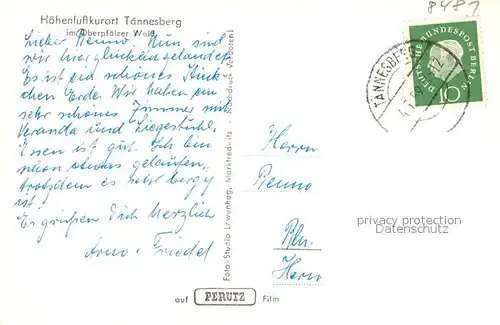 Höhenluftkurort Tännesberg
im Oberpfälzer Wald
Lieber Benno. Nun sind
wir hier glücklich gelandet
Es ist ein schönes Stück-
chen Erde. Wir haben ein
sehr schönes Zimmer mit
Veranda und Liegestühl.
Essen ist gut. Ich bin
schon etwas gelaufen,
trotzdem es sehr bergig
ist.
Es grüßen Dich herzlich
Arno + Friedel
Foto-Studio Löwenhag, Marktredwitz · Nachdruck verboten!
auf PERUTZ Film
8481
TÄNNESBERG
DEUTSCHE BUNDESPOST BERLIN
10
Herrn
Benno
Bln.
Herm
privacy protection
Datenschutz